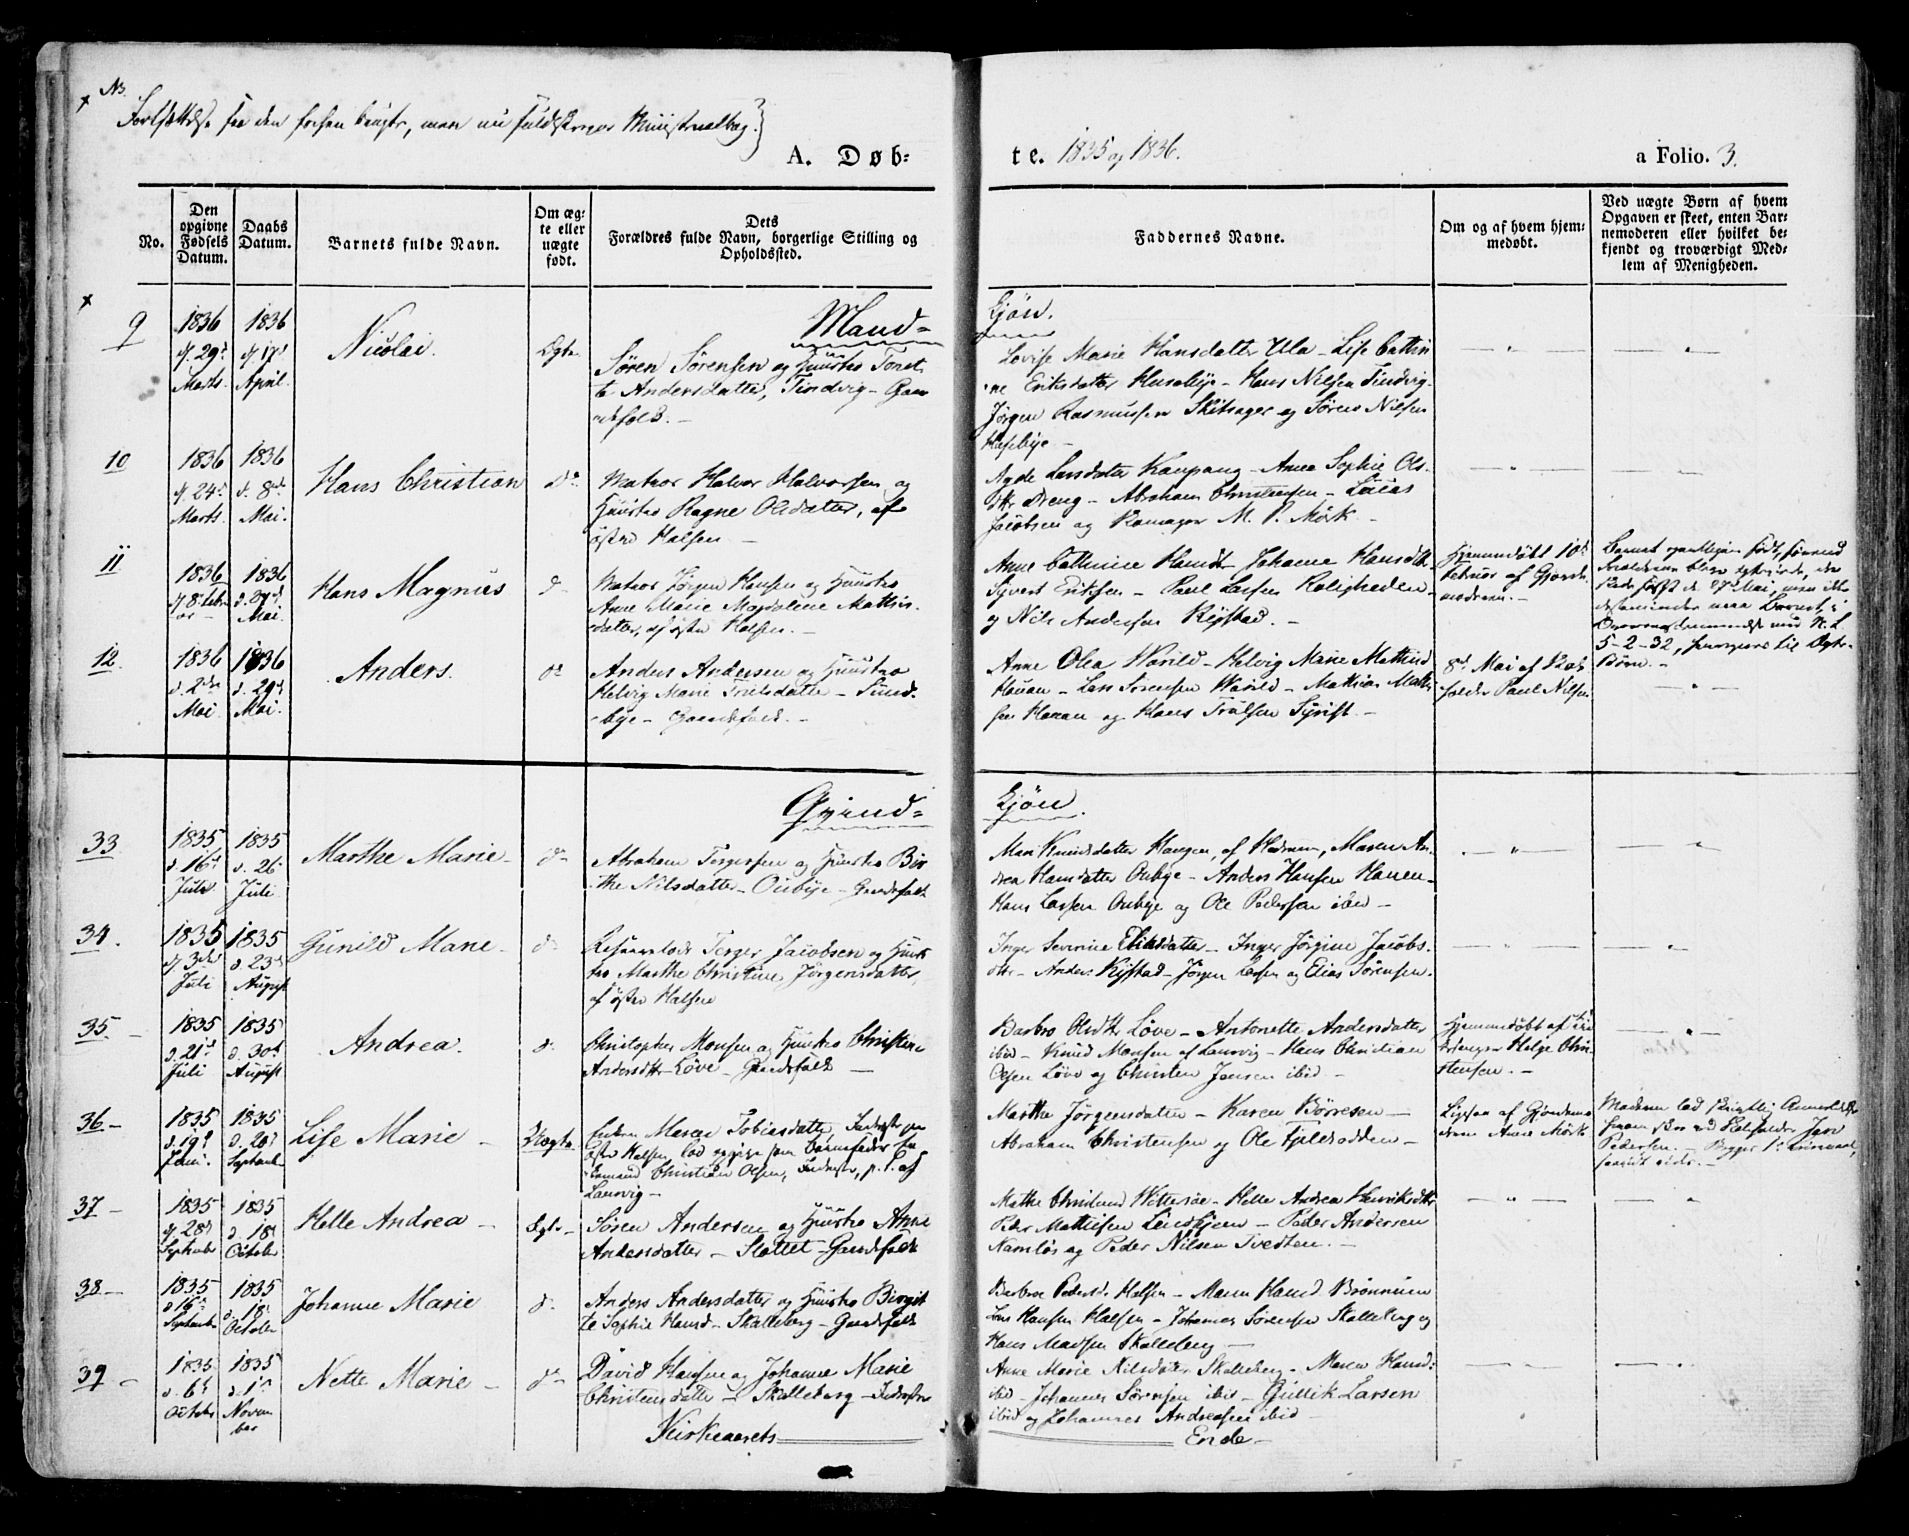 NB.
Fortsættelse fra den forhen brugte, men nu fuldskrevne Ministerialbog.
A. Døb=
te. 1835 og 1836.
a Folio. 3.
No.
Den opgivne Fødsels Datum.
Daabs Datum.
Barnets fulde Navn.
Om æg=
te eller
uægte
født.
Dets
Forældres fulde Navn, borgerlige Stilling og
Opholdssted.
Faddernes Navne.
Om og af hvem hjem=
medøbt.
Ved uægte Børn af hvem
Opgaven er skeet, enten Bar=
nemoderen eller hvilket be=
kjendt og troværdigt Med=
lem af Menigheden.
Mand=
Kjön.
9
1836
d. 29d
Marts.
1836
d. 17d
April.
Nicolai.
Ægte.
Sören Sörensen og Huustro Tonet
te Andersdatter, Tindvig - Gaa
rdfolk. -
Lovise Marie Hansdatter Ula - Lise Cathri
ne Eriksdatter Huseby - Hans Nilsen Tindvig-
Jörgen Rasmussen Skitsager og Sören Nilsen
Huseby -
10
1836
d. 24d
Marts.
1836
d. 8d
Mai.
Hans Christian
do
Matros Halvor Halvorsen og
Huustro Ragne Olsdatter, af
östre Halsen. -
Larsdatter Kaupang - Anne Sophie Ols.
dtr - Abraham Christensen - Lucas
Jacobsen og M. P. Mörk -
11
1836
d. 8 Febru
ar -
1836
d. 27d
Mai.
Hans Magnus
do
Matros Jörgen Hansen og Huustro
Anne Marie Magdalene Mathis
datter, af östre Halsen. -
Anne Cathrine Hansd - Johanne Hansdtr
Syvert Eriksen - Paul Larsen Roligheden -
og Nils Andersen Rýstad. -
Hjemmedöbt 10d
Februar af Gjorde
moderen. -
Barnet er født, forend
Forældrene bleve,
d. 27d Mai, men
Barnet, i
5-2-32, til Ægte-
Börn. -
12.
1836
d. 2den
Mai
1836
d. 29d
Mai.
Anders.
do
Anders Andersen og Huustro
Helvig Marie Trulsdatter - Sund
bye - Gaardfolk. -
Anne Olea Varild - Helvig Marie Mathisd
Hauan - Lars Sörensen Varild - Mathias Math
sen Hauan og Hans Trulsen Syrist -
8d Mai af
Paul Nilsen
Qvind=
Kjön.
33
1835
d. 16d
Juli
1835
d. 26
Juli
Marthe Marie -
do
Abraham Torgersen og Huustro Bir
the Nilsdatter - Oubye - Gaardfolk
Mari Knudsdatter Haugen, af Hedrum, Maren An
drea Hansdatter Oubye - Anders Hansen Hauen -
Hans Larsen Oubye og Ole Pedersen ibid -
34.
1835
d. 3die
Juli
1835
d. 23d
August
Gunild Marie -
do
Torger Jacobsen og Huus
tro Marthe Christine Jörgensdatter,
af östre Halsen
Inger Severine Eliasdatter - Inger Jörgine Jacobs.
dtr - Anders Rýstad - Jörgen Larsen og Elias Sörensen.
35. -
1835
d. 21d
Juli
1835
d. 30d
August
Andrea.
do
Christopher Monsen og Huustro Christine
Andersdtr - Löve - Gaardfolk -
Barbro Olsdtr Löve - Antonette Andersdatter
ibid - Knud Monsen af Laurvig - Hans Christian
Olsen Löve og Christen Jensen ibid -
Hjemmedöbt af
Helge Chri
stensen. -
36 -
1835
d. 19d
Juni.
1835
d. 20d
Septembr
Lise Marie -
Uægte
Enken Maren Tobiasdatter, Inderst paa
östre Halsen, lod opgive som Barnefader
Christian Olsen, Inderste, p. t. af
Laurvig -
Marthe Jörgensdatter - Karen Börresen -
Abraham Christensen og Ole Fjeldodden -
Ligesaa af Gjordemo
deren Anne Mörk
Moderen lod skriftlig Anmeldelse
Jens
Pedersen. -
37 -
1835
d. 28d
Septembr
1835
d. 18d
October
Helle Andrea -
Ægte -
Sören Andersen og Huustro Anne
Andersdatter - Slottet - Gaardfolk
Mathe Christensd Vittersöe - Helle Andrea Henriksdtr
Peder Mathisen Lindhjem - Peder Andersen
Namlös og Peder Nilsen Tvedten. -
38 -
1835
d 16d
Septembr
1835
d. 18d
October
Johanne Marie
do
Anders Andersdatter og Huustro Birgit
te Sophie Hansd - Skalleberg - Gaardfolk
Barbroe Pedersdtr Halsen - Maren Hansd Brönnum
Lars Hansen Halsen - Johannes Sörensen Skalleberg og
Hans Madsen Skalleberg -
39 -
1835
d. 6d
Octobr
1835
d. 1ste
Novem
ber
Nette Marie -
do
David Hansen og Johanne Marie
Christensdatter - Skalleberg - Inderster
Anne Marie Nilsdatter Skalleberg - Maren Hansd:
ibid - Johannes Sörensen ibid - Gullik Larsen
ibid og Johannes Andreasen ibid -
Kirkeaarets
Ende -